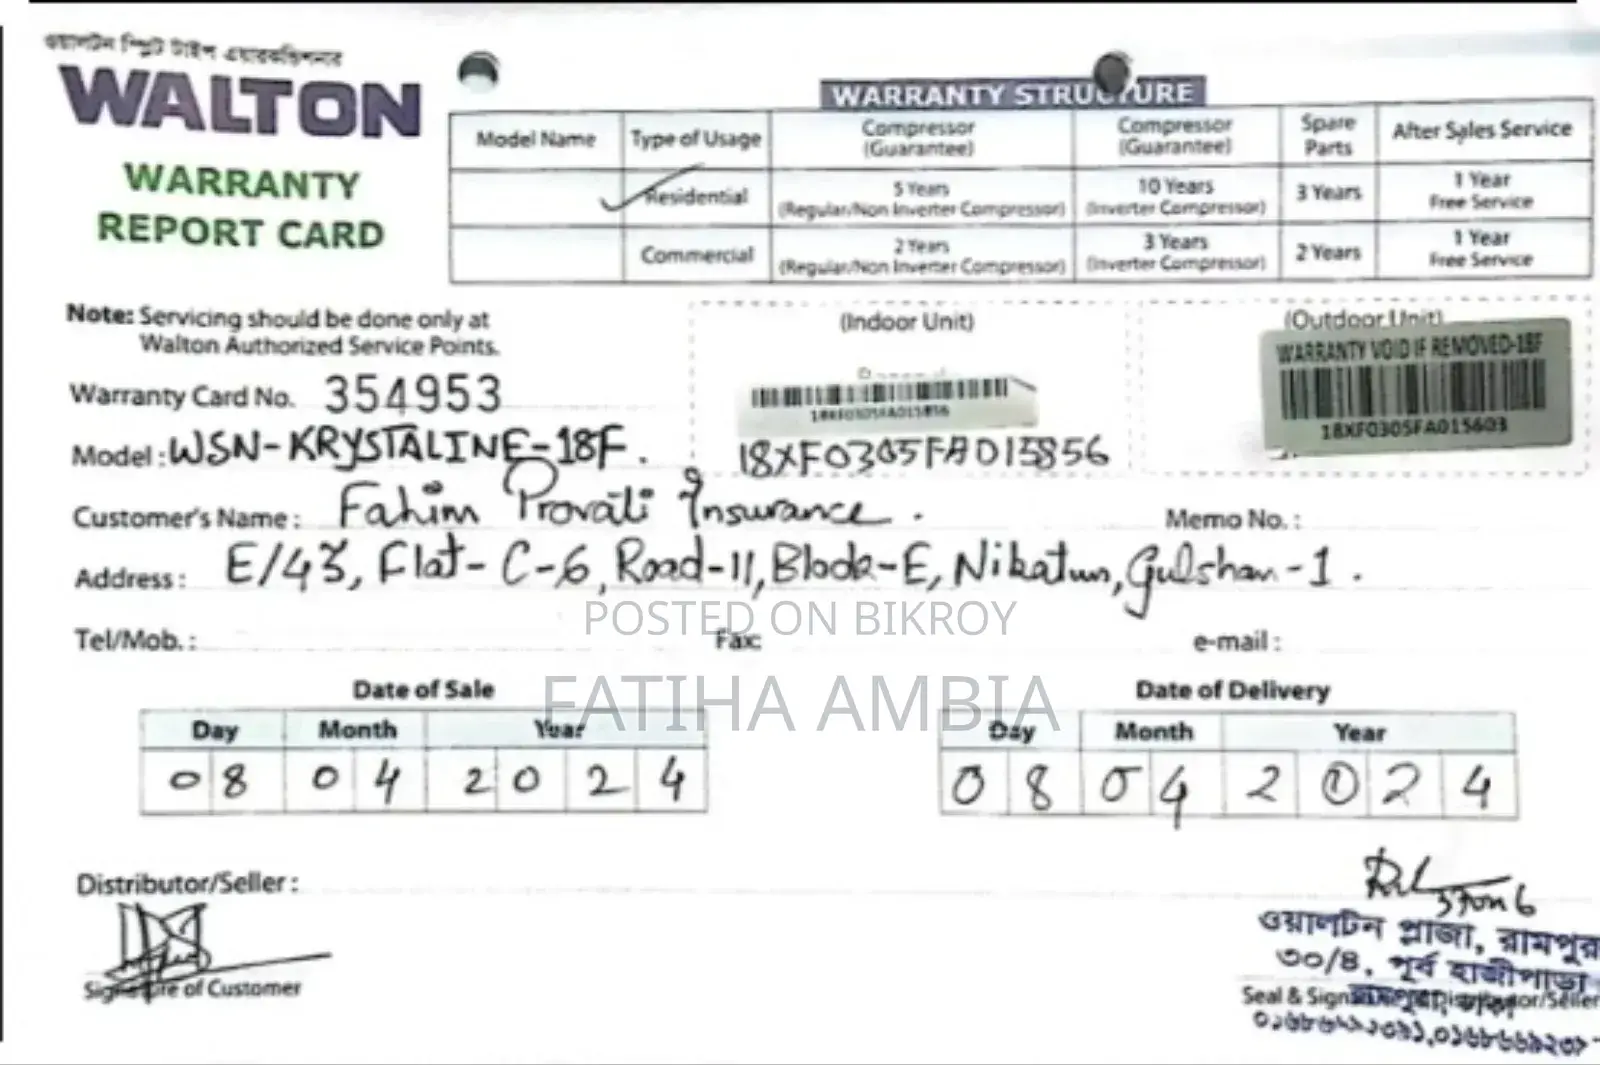 ওয়ালটন স্প্লিট টাইপ এয়ারকন্ডিশনার
WALTON
WARRANTY
REPORT CARD
WARRANTY STRUCTURE
Model Name Type of Usage Compressor (Guarantee) Compressor (Guarantee) Spare Parts After Sales Service
Residential 5 Years (Regular/Non Inverter Compressor) 10 Years (Inverter Compressor) 3 Years 1 Year Free Service
Commercial 2 Years (Regular/Non Inverter Compressor) 3 Years (Inverter Compressor) 2 Years 1 Year Free Service
Note: Servicing should be done only at
Walton Authorized Service Points.
(Indoor Unit)
18XF0305FA015856
18XF0305FA015856
(Outdoor Unit)
WARRANTY VOID IF REMOVED-18F
18XF0305FA015603
Warranty Card No. 354953
Model : WSN-KRYSTALINE-18F.
Customer's Name : Fahim Provati Insurance. Memo No. :
Address : E/43, Flat-C-6, Road-11, Block-E, Niketun, Gulshan-1.
POSTED ON BIKROY
Tel/Mob. : Fax: e-mail :
FATIHA AMBIA
Date of Sale Date of Delivery
Day Month Year Day Month Year
08 04 2024 08 04 2024
Distributor/Seller :
Signature of Customer
ওয়ালটন প্লাজা, রামপুরা
৩০/৪, পূর্ব হাজীপাড়া
Seal & Signature of Distributor/Seller
রামপুরা, ঢাকা